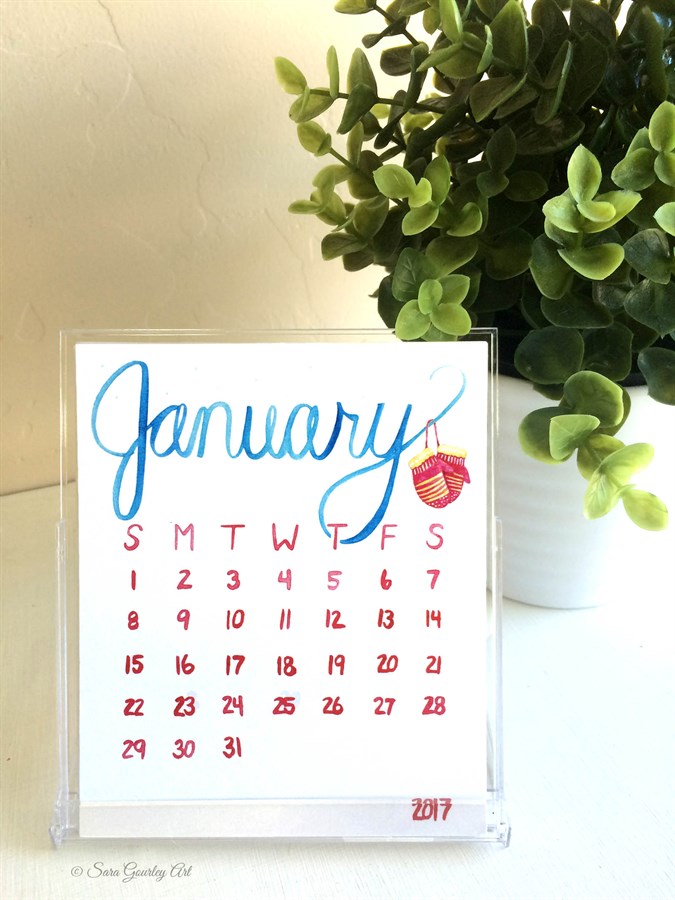 January
S M T W T F S
1 2 3 4 5 6 7
8 9 10 11 12 13 14
15 16 17 18 19 20 21
22 23 24 25 26 27 28
29 30 31
2017
© Sara Gourley Art